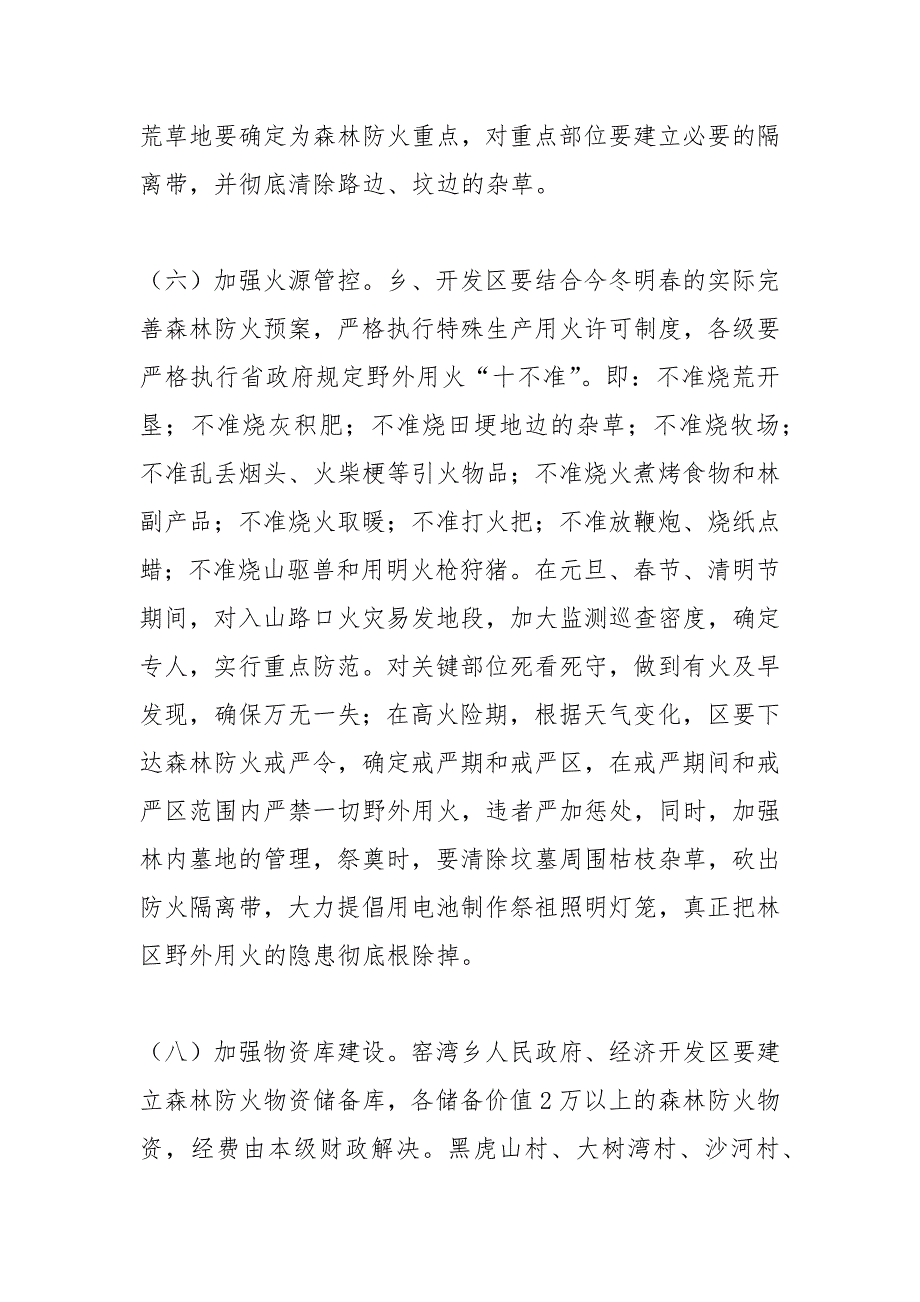 荒草地要确定为森林防火重点，对重点部位要建立必要的隔
离带，并彻底清除路边、坟边的杂草。
（六）加强火源管控。乡、开发区要结合今冬明春的实际完
善森林防火预案，严格执行特殊生产用火许可制度，各级要
严格执行省政府规定野外用火“十不准”。即：不准烧荒开
垦；不准烧灰积肥；不准烧田埂地边的杂草；不准烧牧场；
不准乱丢烟头、火柴梗等引火物品；不准烧火煮烤食物和林
副产品；不准烧火取暖；不准打火把；不准放鞭炮、烧纸点
蜡；不准烧山驱兽和用明火枪狩猪。在元旦、春节、清明节
期间，对入山路口火灾易发地段，加大监测巡查密度，确定
专人，实行重点防范。对关键部位死看死守，做到有火及早
发现，确保万无一失；在高火险期，根据天气变化，区要下
达森林防火戒严令，确定戒严期和戒严区，在戒严期间和戒
严区范围内严禁一切野外用火，违者严加惩处，同时，加强
林内墓地的管理，祭奠时，要清除坟墓周围枯枝杂草，砍出
防火隔离带，大力提倡用电池制作祭祖照明灯笼，真正把林
区野外用火的隐患彻底根除掉。
（八）加强物资库建设。窑湾乡人民政府、经济开发区要建
立森林防火物资储备库，各储备价值2万以上的森林防火物
资，经费由本级财政解决。黑虎山村、大树湾村、沙河村、